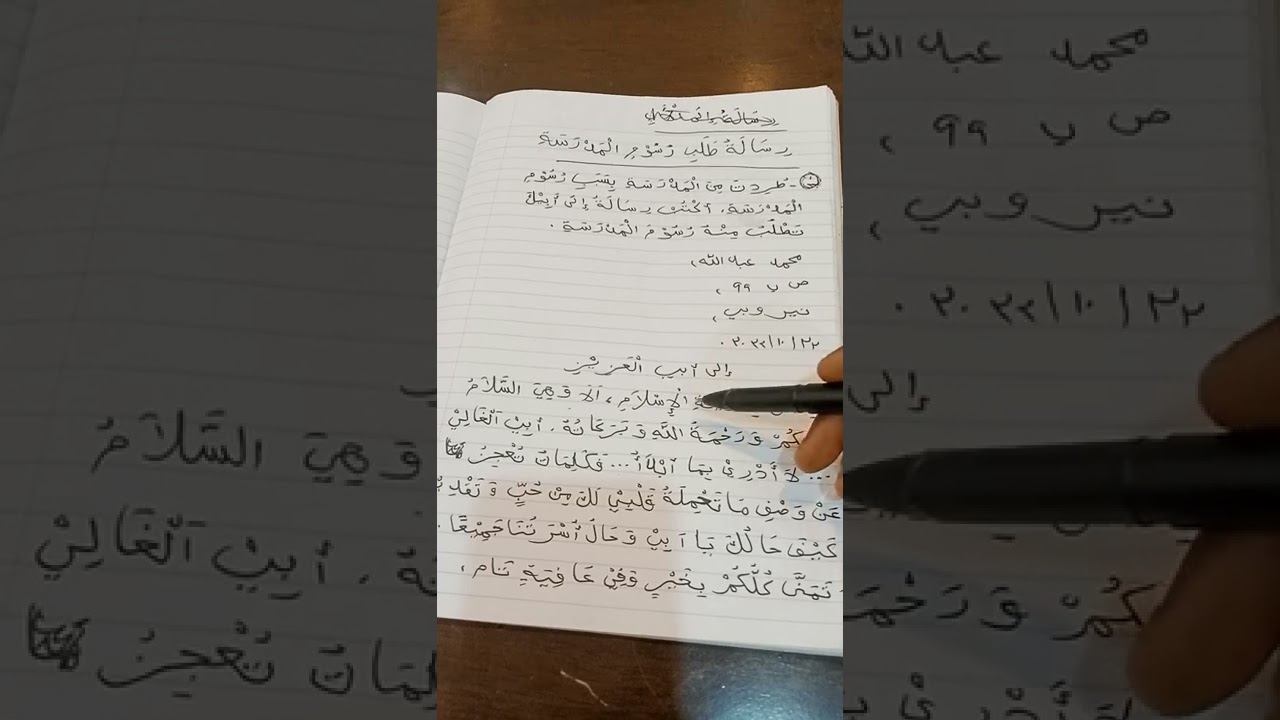 رِسَالَةُ طَلَبِ رُسُوْمِ الْمَدْرَسَةِ
١- طُرِدتَ مِنَ الْمَدْرَسَةِ بِسَبَبِ رُسُوْمِ
الْمَدْرَسَةِ، اُكْتُبْ رِسَالَةً إِلَى أَبِيْكَ
تَطْلُبُ مِنْهُ رُسُوْمَ الْمَدْرَسَةِ.
محمد عبد الله،
ص ب ٩٩،
نيروبي،
إلى أبي الْعَزِيْزِ
الْإِسْلَامِ، أَلَا وَهِيَ السَّلَامُ
كُمْ وَرَحْمَةُ اللَّهِ وَبَرَكَاتُهُ. أَبِيْ اَلْغَالِيْ
... لَا أَدْرِيْ بِمَا أَبْدَأُ... فَكَلِمَاتٌ تُعْجِزُ
عَنْ وَصْفِ مَا تَحْمِلَهُ قَلْبِيْ لَكَ مِنْ حُبٍّ وَ
كَيْفَ حَالُكَ يَا أَبِيْ وَحَالُ أُسْرَتُنَا جَمِيْعًا
تَمَنَّى كُلُّكُمْ بِخَيْرٍ وَفِيْ عَافِيَةٍ تَام،